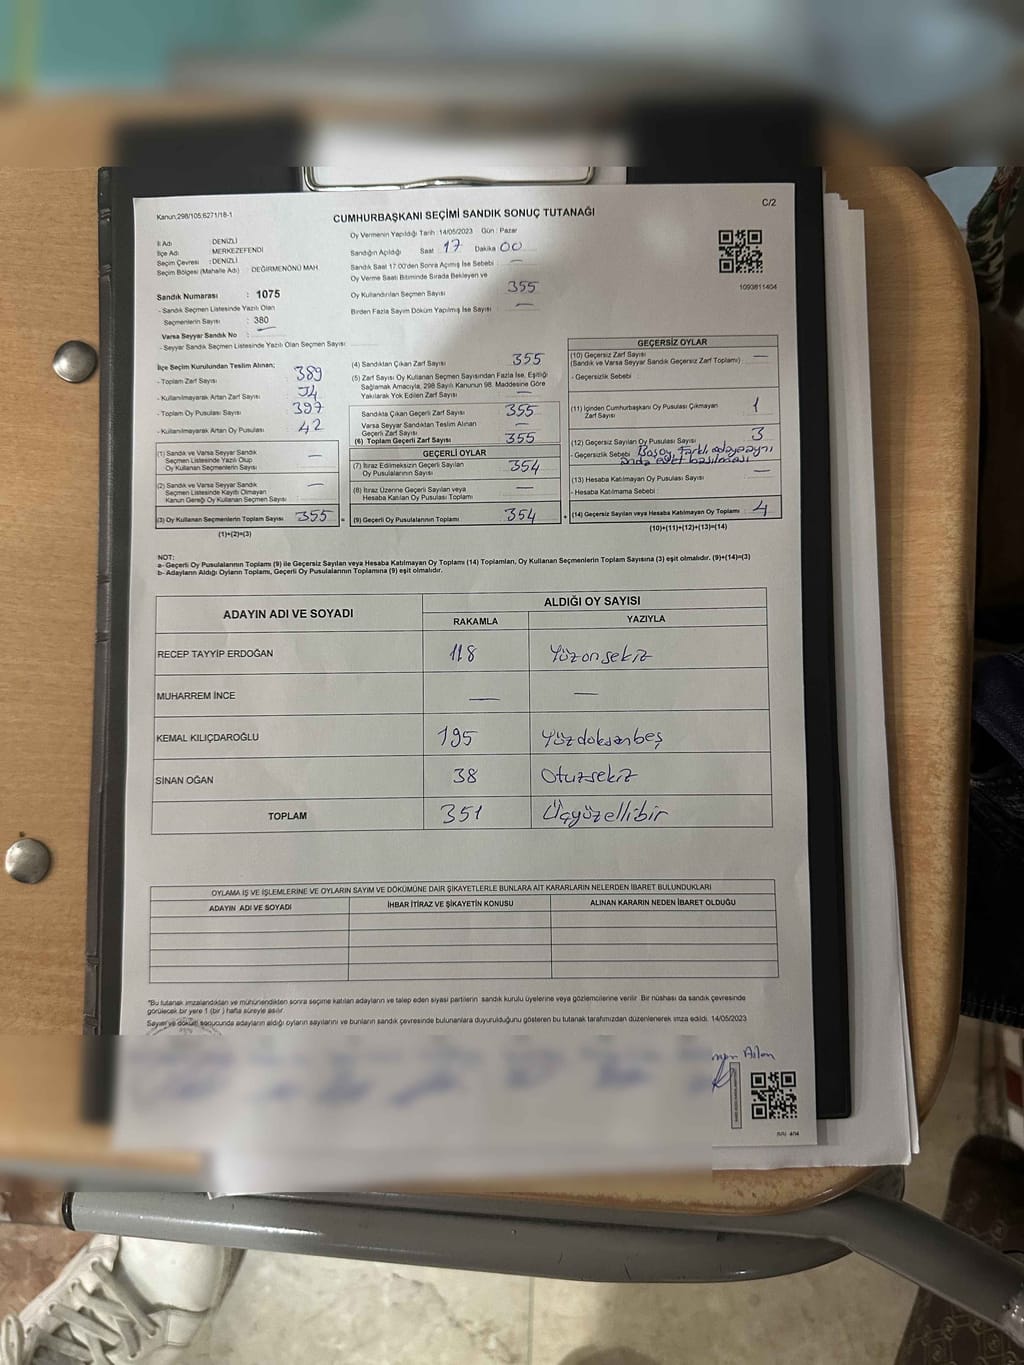 Kanun;298/105;6271/18-1
C/2
CUMHURBAŞKANI SEÇİMİ SANDIK SONUÇ TUTANAĞI
İl Adı : DENİZLİ
İlçe Adı : MERKEZEFENDİ
Seçim Çevresi : DENİZLİ
Seçim Bölgesi (Mahalle Adı) : DEĞİRMENÖNÜ MAH.
Sandık Numarası : 1075
- Sandık Seçmen Listesinde Yazılı Olan
Seçmenlerin Sayısı : 380
Varsa Seyyar Sandık No : —
- Seyyar Sandık Seçmen Listesinde Yazılı Olan Seçmen Sayısı :
Oy Vermenin Yapıldığı Tarih : 14/05/2023 Gün : Pazar
Sandığın Açıldığı Saat 17 Dakika 00
Sandık Saat 17:00'den Sonra Açımış İse Sebebi : —
Oy Verme Saati Bitiminde Sırada Bekleyen ve
Oy Kullandırılan Seçmen Sayısı 355
Birden Fazla Sayım Döküm Yapılmış İse Sayısı : —
1093811404
İlçe Seçim Kurulundan Teslim Alınan;
- Toplam Zarf Sayısı 389
- Kullanılmayarak Artan Zarf Sayısı 34
- Toplam Oy Pusulası Sayısı 397
- Kullanılmayarak Artan Oy Pusulası 42
(1) Sandık ve Varsa Seyyar Sandık
Seçmen Listesinde Yazılı Olup
Oy Kullanan Seçmenlerin Sayısı —
(2) Sandık ve Varsa Seyyar Sandık
Seçmen Listesinde Kayıtlı Olmayan
Kanun Gereği Oy Kullanan Seçmen Sayısı —
(3) Oy Kullanan Seçmenlerin Toplam Sayısı 355 =
(1)+(2)=(3)
(4) Sandıktan Çıkan Zarf Sayısı 355
(5) Zarf Sayısı Oy Kullanan Seçmen Sayısından Fazla İse, Eşitliği
Sağlamak Amacıyla, 298 Sayılı Kanunun 98. Maddesine Göre
Yakılarak Yok Edilen Zarf Sayısı —
Sandıkta Çıkan Geçerli Zarf Sayısı 355
Varsa Seyyar Sandıktan Teslim Alınan
Geçerli Zarf Sayısı —
(6) Toplam Geçerli Zarf Sayısı 355
GEÇERLİ OYLAR
(7) İtiraz Edilmeksizin Geçerli Sayılan
Oy Pusulalarının Sayısı 354
(8) İtiraz Üzerine Geçerli Sayılan veya
Hesaba Katılan Oy Pusulası Toplamı —
(9) Geçerli Oy Pusulalarının Toplamı 354 +
GEÇERSİZ OYLAR
(10) Geçersiz Zarf Sayısı
(Sandık ve Varsa Seyyar Sandık Geçersiz Zarf Toplamı) —
- Geçersizlik Sebebi :
(11) İçinden Cumhurbaşkanı Oy Pusulası Çıkmayan
Zarf Sayısı 1
(12) Geçersiz Sayılan Oy Pusulası Sayısı 3
- Geçersizlik Sebebi : Boş oy, farklı adaya aynı
anda evet basılması
(13) Hesaba Katılmayan Oy Pusulası Sayısı —
- Hesaba Katılmama Sebebi :
(14) Geçersiz Sayılan veya Hesaba Katılmayan Oy Toplamı 4
(10)+(11)+(12)+(13)=(14)
NOT:
a- Geçerli Oy Pusulalarının Toplamı (9) ile Geçersiz Sayılan veya Hesaba Katılmayan Oy Toplamı (14) Toplamları, Oy Kullanan Seçmenlerin Toplam Sayısına (3) eşit olmalıdır. (9)+(14)=(3)
b- Adayların Aldığı Oyların Toplamı, Geçerli Oy Pusulalarının Toplamına (9) eşit olmalıdır.
ADAYIN ADI VE SOYADI
ALDIĞI OY SAYISI
RAKAMLA YAZIYLA
RECEP TAYYİP ERDOĞAN 118 Yüzonsekiz
MUHARREM İNCE — —
KEMAL KILIÇDAROĞLU 195 Yüzdoksanbeş
SİNAN OĞAN 38 Otuzsekiz
TOPLAM 351 Üçyüzellibir
OYLAMA İŞ VE İŞLEMLERİNE VE OYLARIN SAYIM VE DÖKÜMÜNE DAİR ŞİKAYETLERLE BUNLARA AİT KARARLARIN NELERDEN İBARET BULUNDUKLARI
ADAYIN ADI VE SOYADI İHBAR İTİRAZ VE ŞİKAYETİN KONUSU ALINAN KARARIN NEDEN İBARET OLDUĞU
"Bu tutanak imzalandıktan ve mühürlendikten sonra seçime katılan adayların ve talep eden siyasi partilerin sandık kurulu üyelerine veya gözlemcilerine verilir. Bir nüshası da sandık çevresinde
görülecek bir yere 1 (bir ) hafta süreyle asılır.
Sayım ve döküm sonucunda adayların aldığı oyların sayılarını ve bunların sandık çevresinde bulunanlara duyurulduğunu gösteren bu tutanak tarafımızdan düzenlenerek imza edildi. 14/05/2023